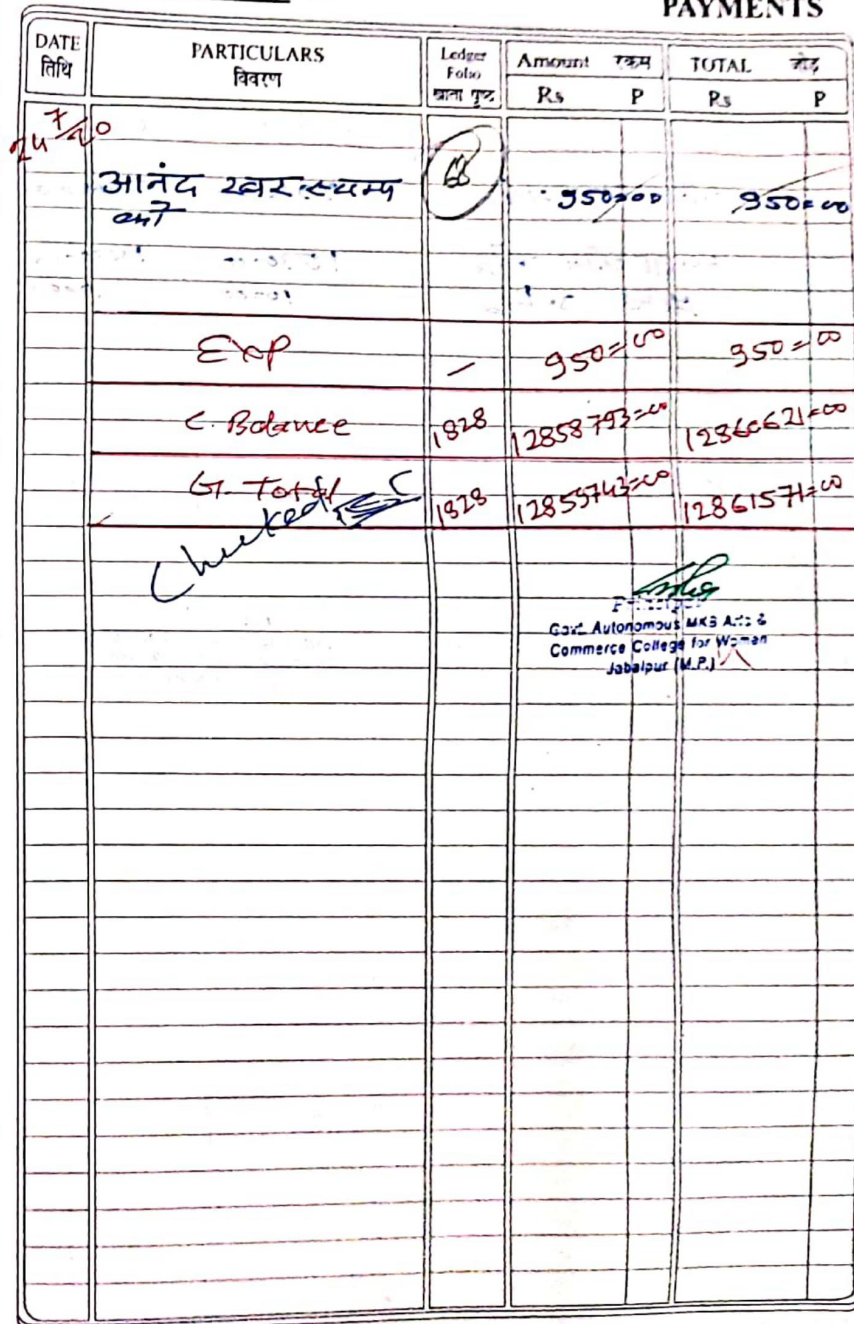 PAYMENTS
DATE PARTICULARS Ledger Amount रकम TOTAL जोड़
तिथि विवरण Folio Rs P Rs P
खाता पृष्ठ
24/7/20
आनंद रबर स्टाम्प 68 950=00 950=00
को
Exp — 950=00 950=00
C. Balance 1828 12858793=00 12860621=00
G. Total 1828 12859743=00 12861571=00
Checked
Principal
Govt. Autonomous MKB Arts &
Commerce College for Women
Jabalpur (M.P.)